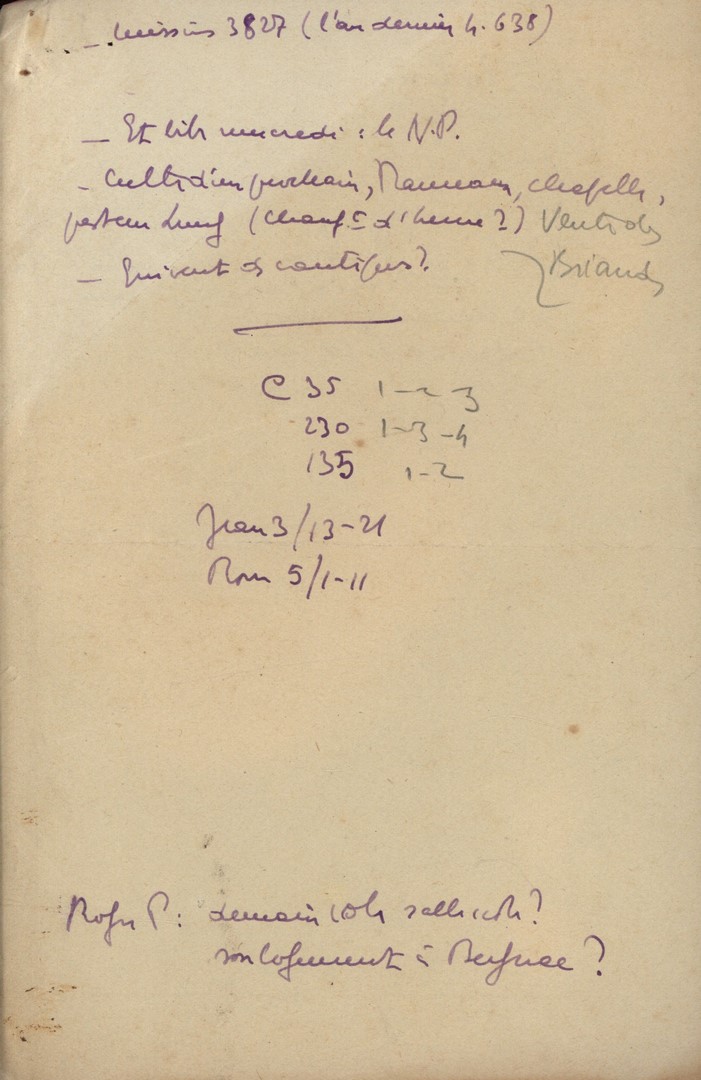 – missions 3827 (l'an dernier 4.638)
– Et bibl mercredi : le N.P.
– Culte dim prochain, , chapelle,
pasteur Lung (changt d'heure ?) Vente des
– de cantiques ? Briand
C 35 1-2-3
230 1-3-4
135 1-2
Jean 3/13-21
Rom 5/1-11
Roger P : demain cole salle cole ?
son logement à ?